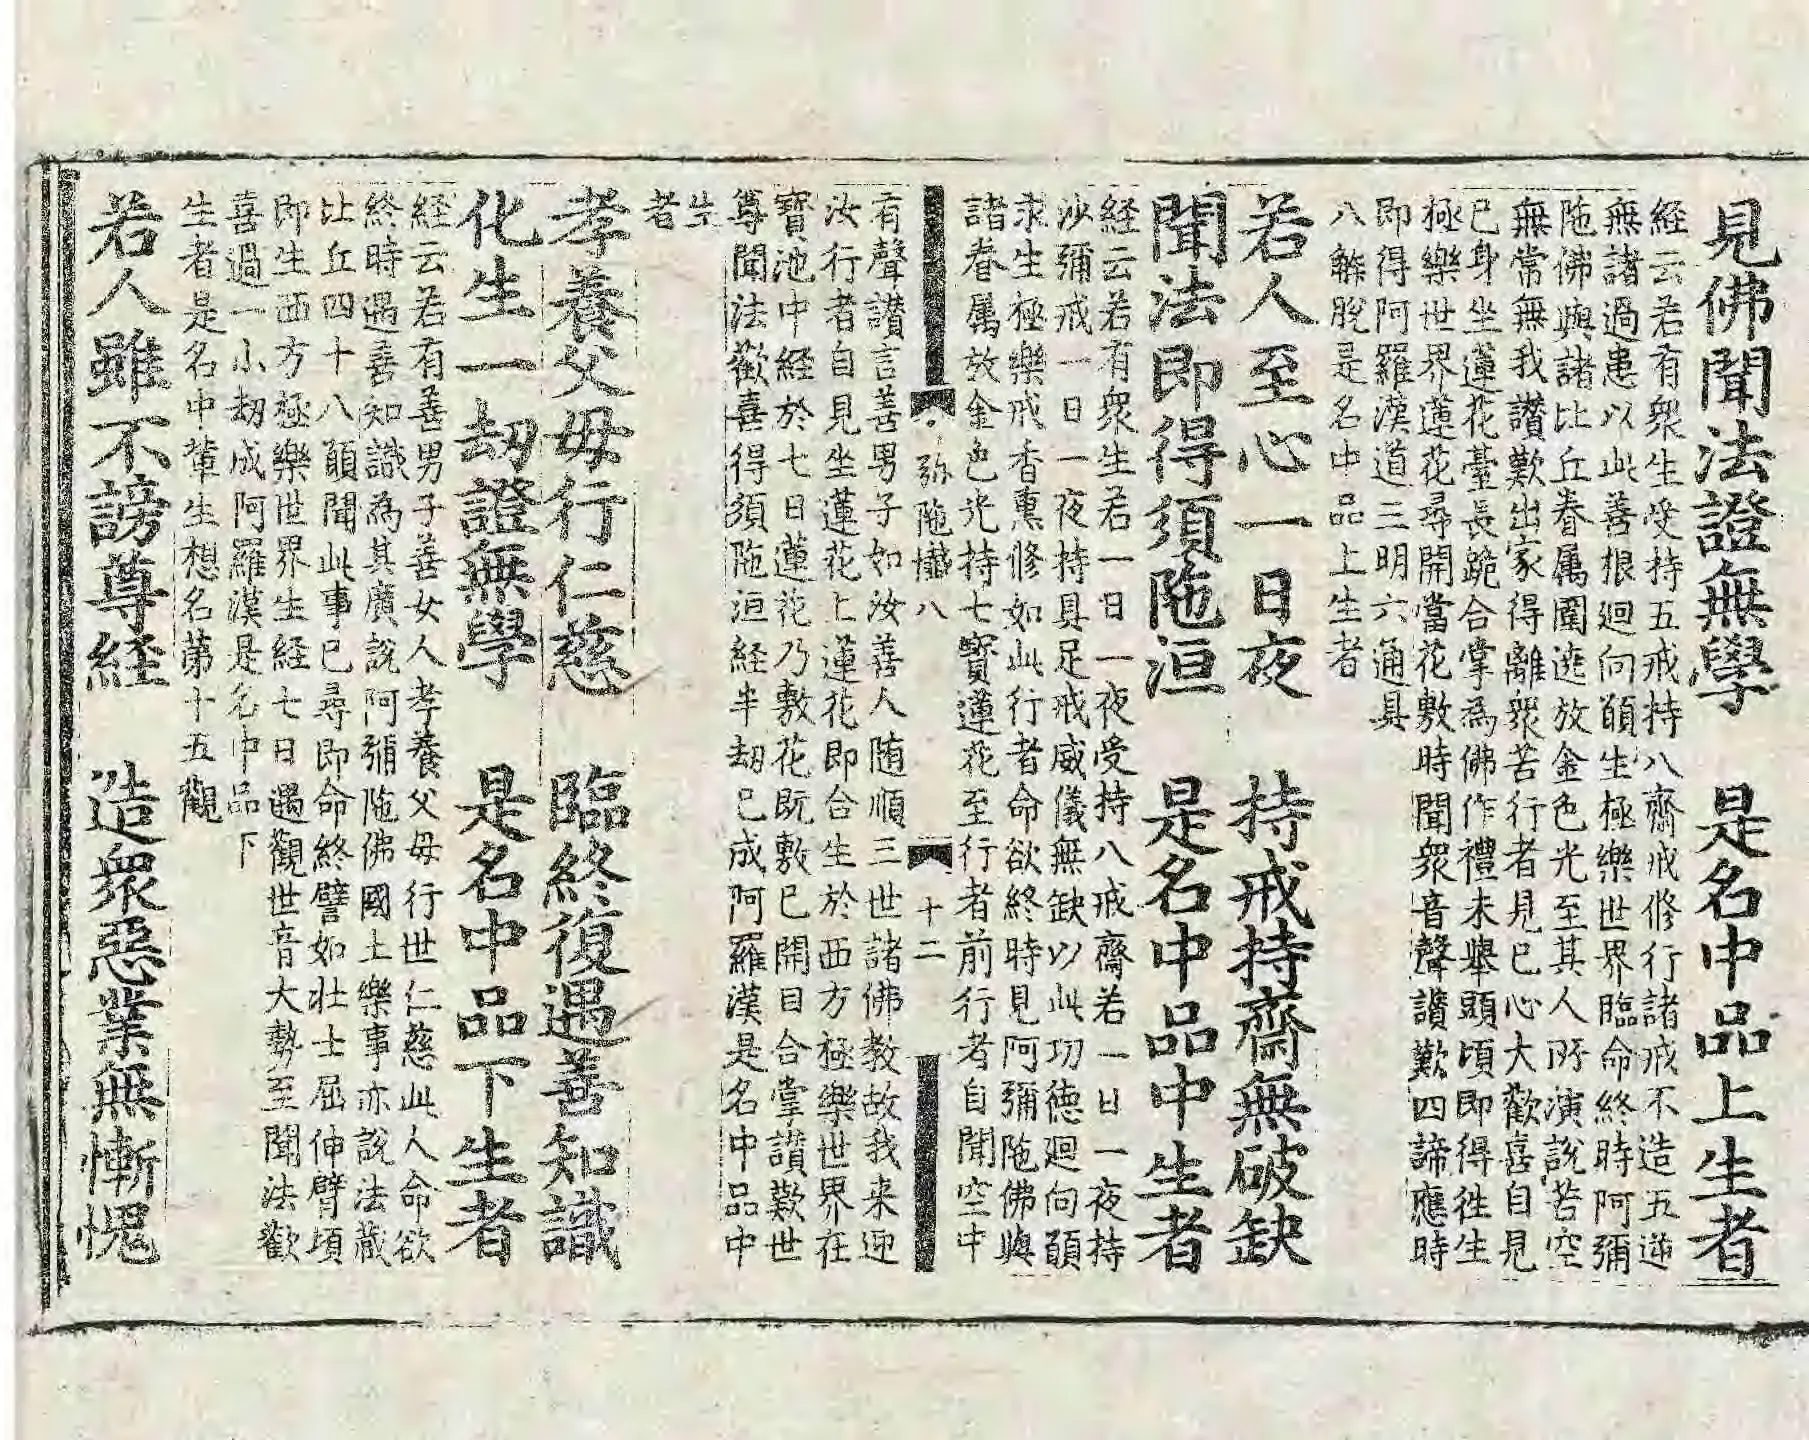 見佛聞法證無學　是名中品上生者
経云若有衆生受持五戒持八齋戒修行諸戒不造五逆
無諸過患以此善根迴向願生極樂世界臨命終時阿彌
陁佛與諸比丘眷属圍遶放金色光至其人所演說苦空
無常無我讃歎出家得離衆苦行者見已心大歡喜自見
已身坐蓮花臺長跪合掌為佛作禮未舉頭頃即得徃生
極樂世界蓮花尋開當花敷時聞衆音聲讃歎四諦應時
即得阿羅漢道三明六通具
八觧脫是名中品上生者
若人至心一日夜　持戒持齋無破缺
聞法即得須陁洹　是名中品中生者
経云若有衆生若一日一夜受持八戒齋若一日一夜持
沙彌戒一日一夜持具足戒威儀無缺以此功德廻向願
求生極樂戒香熏修如此行者命欲終時見阿彌陁佛與
諸眷属放金色光持七寶蓮花至行者前行者自聞空中
弥陁懺八　十二
有聲讃言善男子如汝善人随順三世諸佛教故我来迎
汝行者自見坐蓮花上蓮花即合生於西方極樂世界在
寶池中経於七日蓮花乃敷花既敷已開目合掌讃歎世
尊聞法歡喜得須陁洹経半劫已成阿羅漢是名中品中
生
者
孝養父母行仁慈　臨終復遇善知識
化生一劫證無學　是名中品下生者
経云若有善男子善女人孝養父母行世仁慈此人命欲
終時遇善知識為其廣說阿彌陁佛國土樂事亦說法藏
比丘四十八願聞此事已尋即命終譬如壯士屈伸臂頃
即生西方極樂世界生経七日遇觀世音大勢至聞法歡
喜過一小劫成阿羅漢是名中品下
生者是名中軰生想名苐十五觀
若人雖不謗尊経　造衆惡業無慚愧